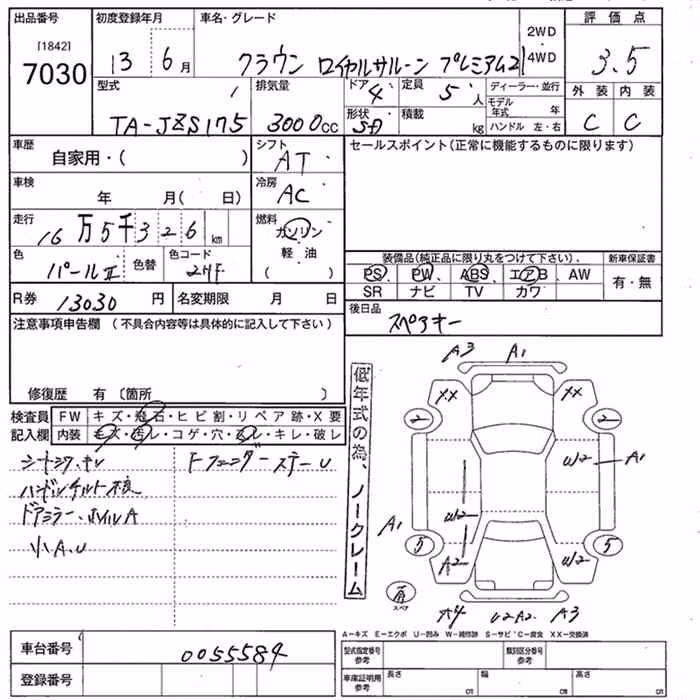 出品番号 初度登録年月 車名・グレード 評価点
[1842]
7030
13 6月
クラウン ロイヤルサルーン プレミアム21
2WD
4WD
3.5
型式 排気量 ドア 4 定員 5人 ディーラー・並行 外装 内装
TA-JZS175 3000cc 形状 SD 積載 kg
モデル年式 年
ハンドル 左・右
C C
車歴 自家用・( )
シフト AT
セールスポイント(正常に機能するものに限ります)
車検 年 月( 日)
冷房 AC
走行 16万5千326km
燃料 ガソリン
軽油
( )
色 パールⅡ 色替 色コード 2HF
装備品(純正品に限り丸をつけて下さい). 新車保証書
PS PW ABS エアB AW 有・無
SR ナビ TV カワ
R券 13030円 名変期限 月 日
後日品 スペアキー
注意事項申告欄(不具合内容等は具体的に記入して下さい)
修復歴 有〔箇所 〕
検査員記入欄
FW キズ・飛石・ヒビ割・リペア跡・X要
内装 キズ・汚レ・コゲ・穴・スレ・キレ・破レ
シートコゲ、キレ
ハンドルチルト不良
ドアミラー、ホイルA
小A、U
Fフェンダーステー U
低年式の為、ノークレーム
A3 A1
XX XX
2 2
W2 A1
W2
A1
5 5
A2 W2
スペア
U2 A2 A3
A-キズ E-エクボ U-凹み W-補修跡 S-サビ C-腐食 XX-交換済
車台番号 0055584
登録番号
型式指定番号 参考 類別区分番号 参考
車庫証明用 参考 長さ cm 幅 cm 高さ cm